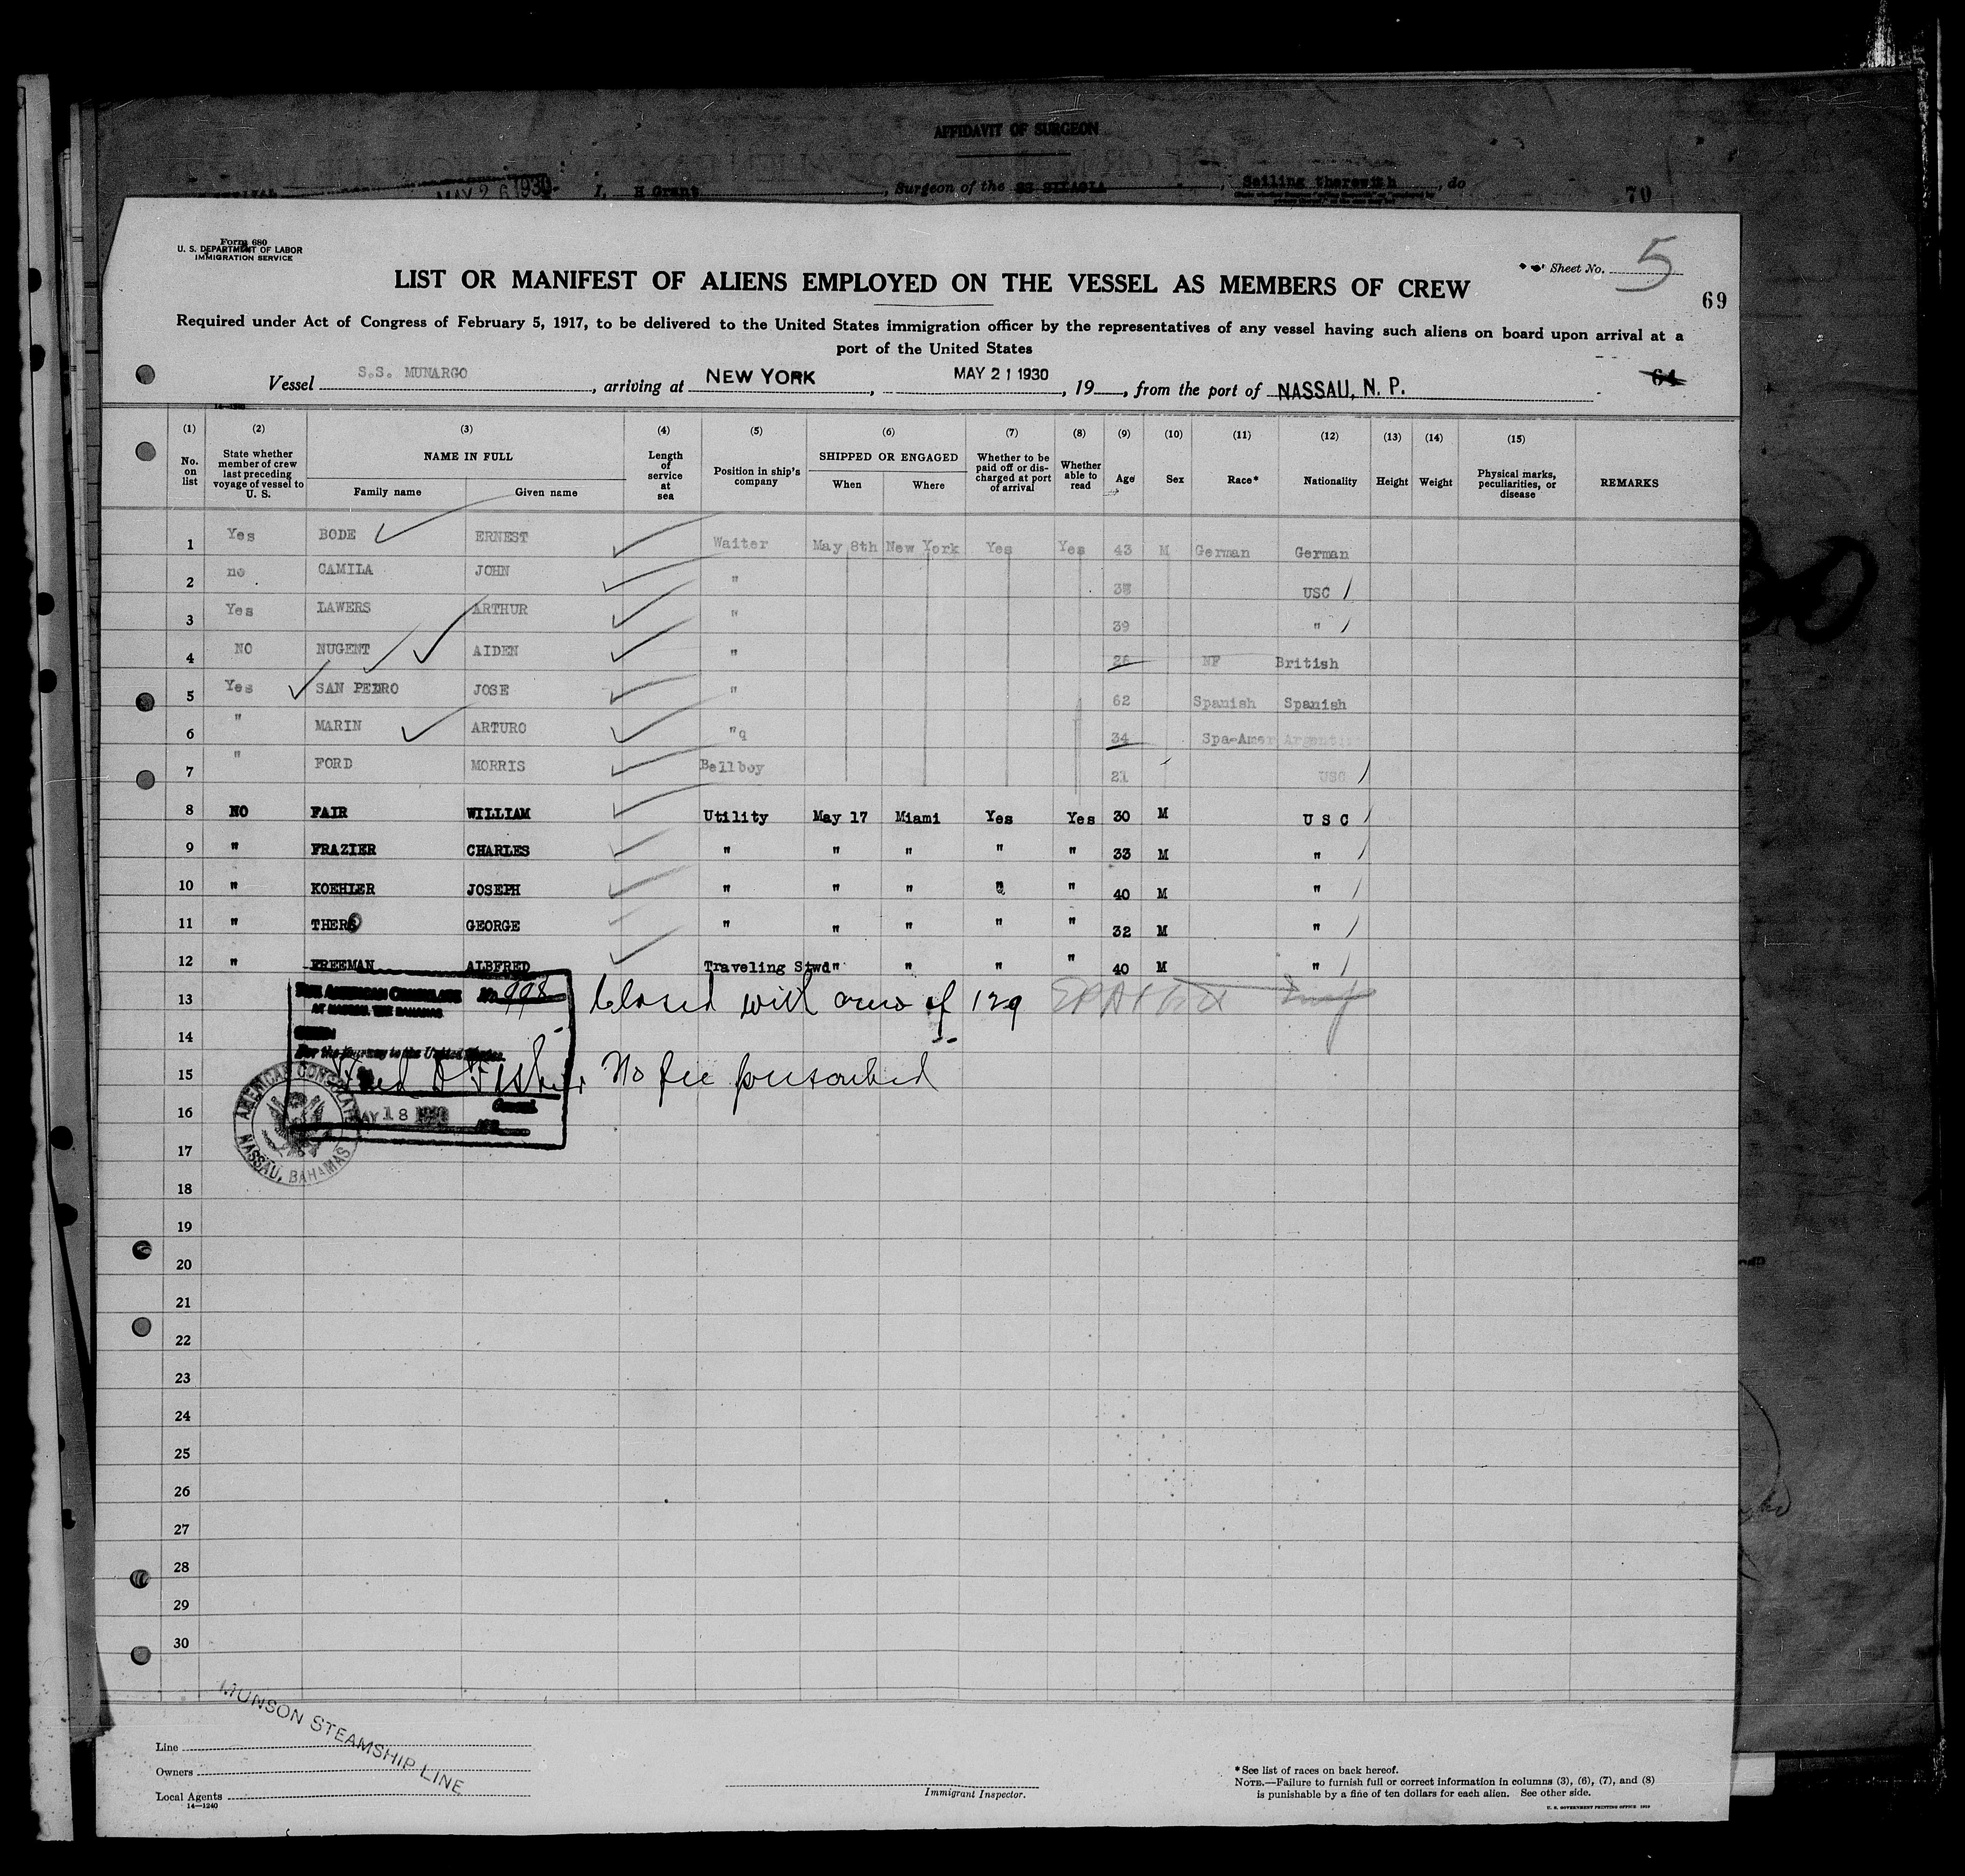 AFFIDAVIT OF SURGEON
MAY 26 1930 I, H Grant, Surgeon of the SS SIXAOLA, Sailing therewith, do
70
Form 680
U. S. DEPARTMENT OF LABOR
IMMIGRATION SERVICE
Sheet No. 5
LIST OR MANIFEST OF ALIENS EMPLOYED ON THE VESSEL AS MEMBERS OF CREW
69
Required under Act of Congress of February 5, 1917, to be delivered to the United States immigration officer by the representatives of any vessel having such aliens on board upon arrival at a
port of the United States
64
Vessel S.S. MUNARGO, arriving at NEW YORK, MAY 21 1930, 19, from the port of NASSAU, N. P.
14-1240
(1) (2) (3) (4) (5) (6) (7) (8) (9) (10) (11) (12) (13) (14) (15)
No. on list State whether member of crew last preceding voyage of vessel to U. S. NAME IN FULL Family name Given name Length of service at sea Position in ship's company SHIPPED OR ENGAGED When Where Whether to be paid off or discharged at port of arrival Whether able to read Age Sex Race* Nationality Height Weight Physical marks, peculiarities, or disease REMARKS
1 Yes BODE ERNEST Waiter May 8th New York Yes Yes 43 M German German
2 no CAMILA JOHN " USC
3 Yes LAWERS ARTHUR " 39 "
4 NO NUGENT AIDEN " NF British
5 Yes SAN PEDRO JOSE " 62 Spanish Spanish
6 " MARIN ARTURO "q 34 Spa-Amer Argentin
7 " FORD MORRIS Bellboy 21 USC
8 NO FAIR WILLIAM Utility May 17 Miami Yes Yes 30 M U S C
9 " FRAZIER CHARLES " " " " " 33 M "
10 " KOEHLER JOSEPH " " " " " 40 M "
11 " THERO GEORGE " " " " " 32 M "
12 " FREEMAN ALBFRED Traveling Stwd " " " " 40 M "
13 THE AMERICAN CONSULATE No. 998 Closed with crew of 129
AT NASSAU, THE BAHAMAS
14
For the journey to the United States.
15 Fred D Fisher No fee prescribed
Consul
16 MAY 18 1930
AMERICAN CONSULATE NASSAU, BAHAMAS
17
18
19
20
21
22
23
24
25
26
27
28
29
30
MUNSON STEAMSHIP LINE
Line
Owners
Local Agents
14—1240
Immigrant Inspector.
*See list of races on back hereof.
NOTE.—Failure to furnish full or correct information in columns (3), (6), (7), and (8)
is punishable by a fine of ten dollars for each alien. See other side.
U. S. GOVERNMENT PRINTING OFFICE 1929